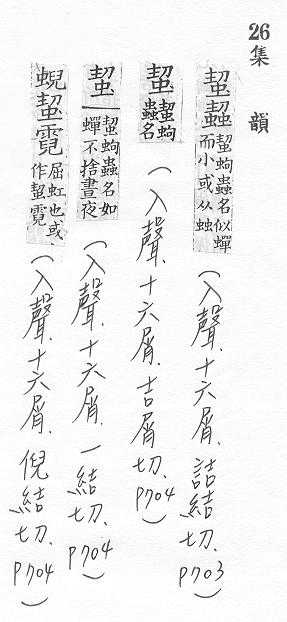 26 集韻
蛪 蛪蚼蟲名似蟬而小或从䖵(入聲.十六屑.詰結切.P703)
蛪 蛪蚼蟲名(入聲.十六屑.吉屑切.P704)
蛪 蛪蚼蟲名如蟬不捨晝夜(入聲.十六屑.一結切.P704)
蜺蛪霓 屈虹也或作蛪霓(入聲.十六屑.倪結切.P704)